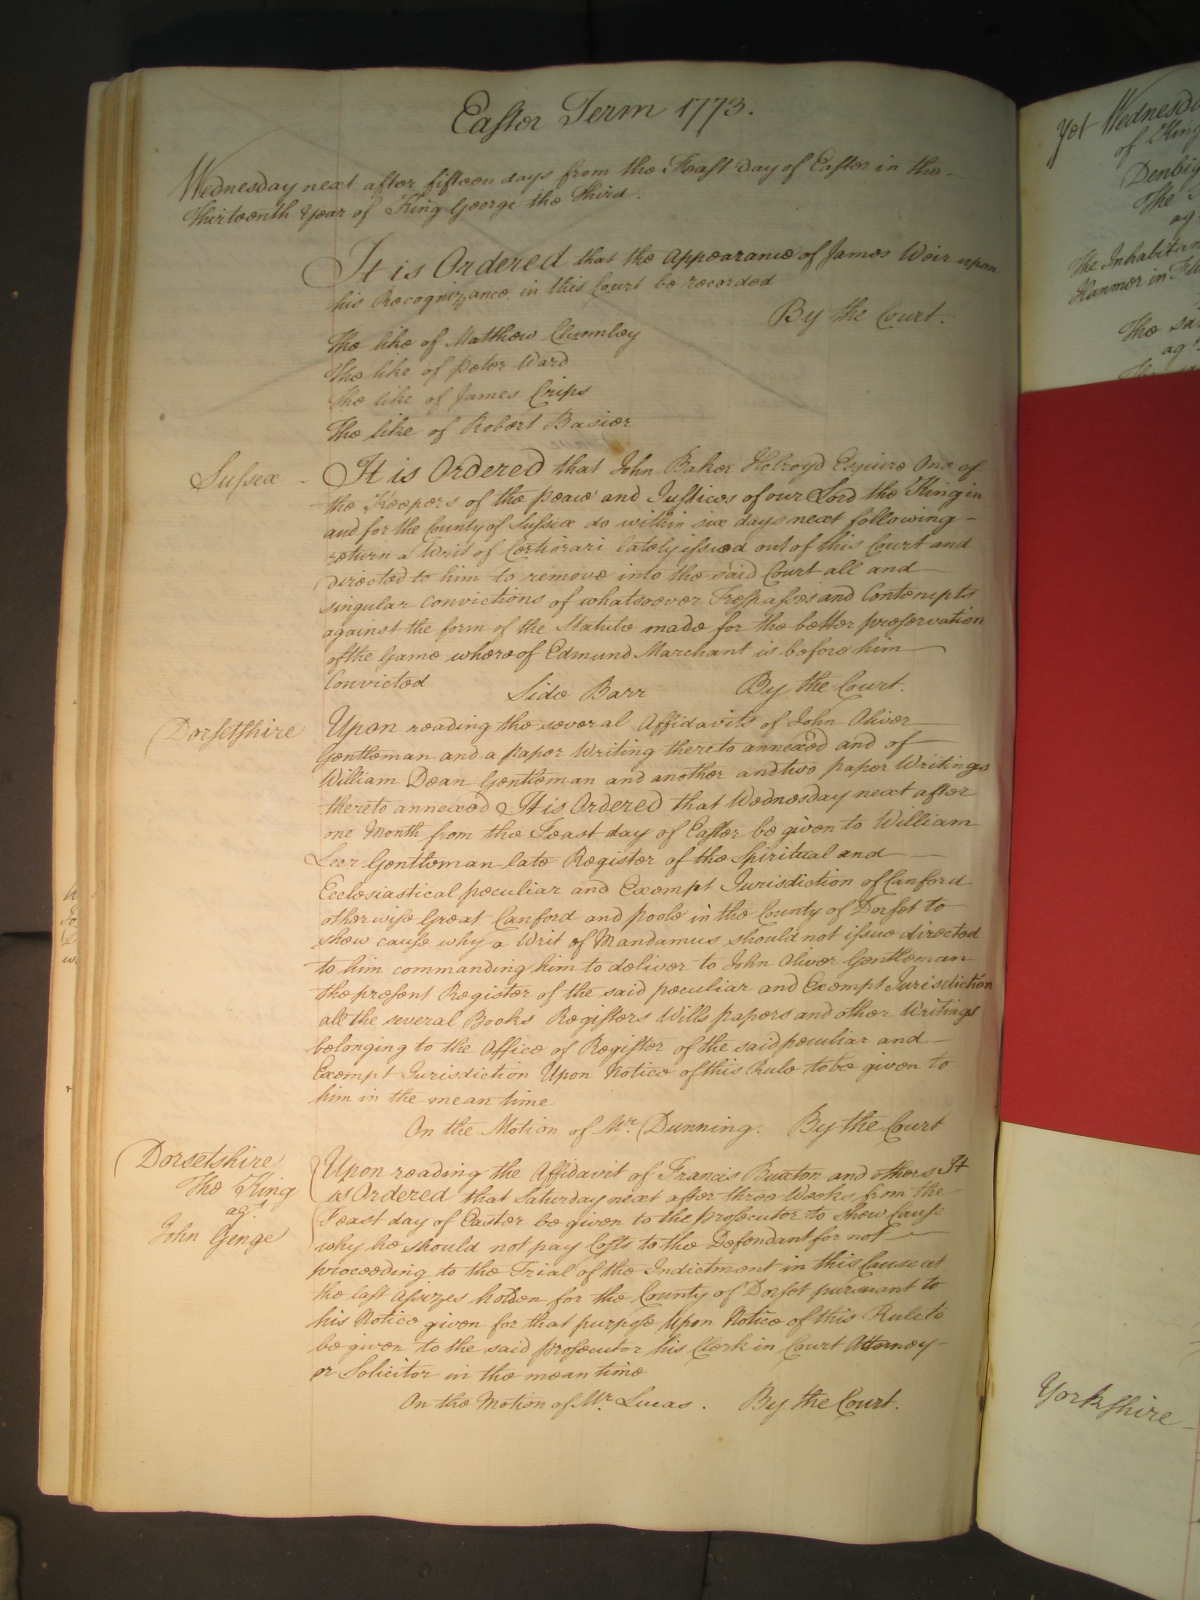 Easter Term 1773.
Wednesday next after fifteen days from the Feast day of Easter in the
Thirteenth Year of King George the Third.
It is Ordered that the Appearance of James Weir upon
his Recognizance in this Court be recorded
By the Court.
The like of Matthew Clumley
The like of Peter Ward
The like of James Crips
The like of Robert Basier
Sussex - It is Ordered that John Baker Holroyd Esquire One of
the Keepers of the peace and Justices of our Lord the King in
and for the County of Sussex do within six days next following
return a Writ of Certiorari lately issued out of this Court and
directed to him to remove into the said Court all and
singular Convictions of whatsoever Trespasses and Contempts
against the form of the Statute made for the better preservation
of the Game whereof Edmund Marchant is before him
Convicted Side Barr By the Court.
Dorsetshire Upon reading the several Affidavits of John Oliver
Gentleman and a paper Writing thereto annexed and of
William Dean Gentleman and another and two paper Writings
thereto annexed It is Ordered that Wednesday next after
one Month from the Feast day of Easter be given to William
Leer Gentleman late Register of the Spiritual and
Ecclesiastical peculiar and Exempt Jurisdiction of Canford
otherwise Great Canford and poole in the County of Dorset to
shew cause why a Writ of Mandamus should not issue directed
to him commanding him to deliver to John Oliver Gentleman
the present Register of the said peculiar and Exempt Jurisdiction
all the several Books Registers Wills papers and other Writings
belonging to the Office of Register of the said peculiar and
Exempt Jurisdiction Upon Notice of this Rule to be given to
him in the mean time
On the Motion of Mr. Dunning. By the Court
Dorsetshire
The King
agt
John Genge
Upon reading the Affidavit of Francis Buxton and others It
is Ordered that Saturday next after three Weeks from the
Feast day of Easter be given to the prosecutor to shew Cause
why he should not pay Costs to the Defendant for not
proceeding to the Trial of the Indictment in this Cause at
the last Assizes holden for the County of Dorset pursuant to
his Notice given for that purpose Upon Notice of this Rule to
be given to the said prosecutor his Clerk in Court Attorney
or Solicitor in the mean time
On the Motion of Mr. Lucas. By the Court.
Yet Wednesda
of King
Denbig
The
ag
the Inhabitan
Hanmer in
The sa
agt
Yorkshire